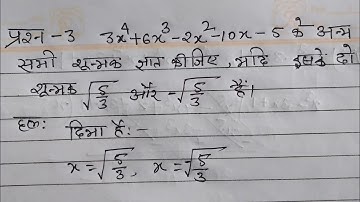 प्रश्न-3 3x⁴+6x³-2x²-10x-5 के अन्य
सभी शून्यक ज्ञात कीजिए, यदि इसके दो
शून्यक √5/3 और -√5/3 हैं।
हल: दिया है:-
x=√5/3, x=-√5/3